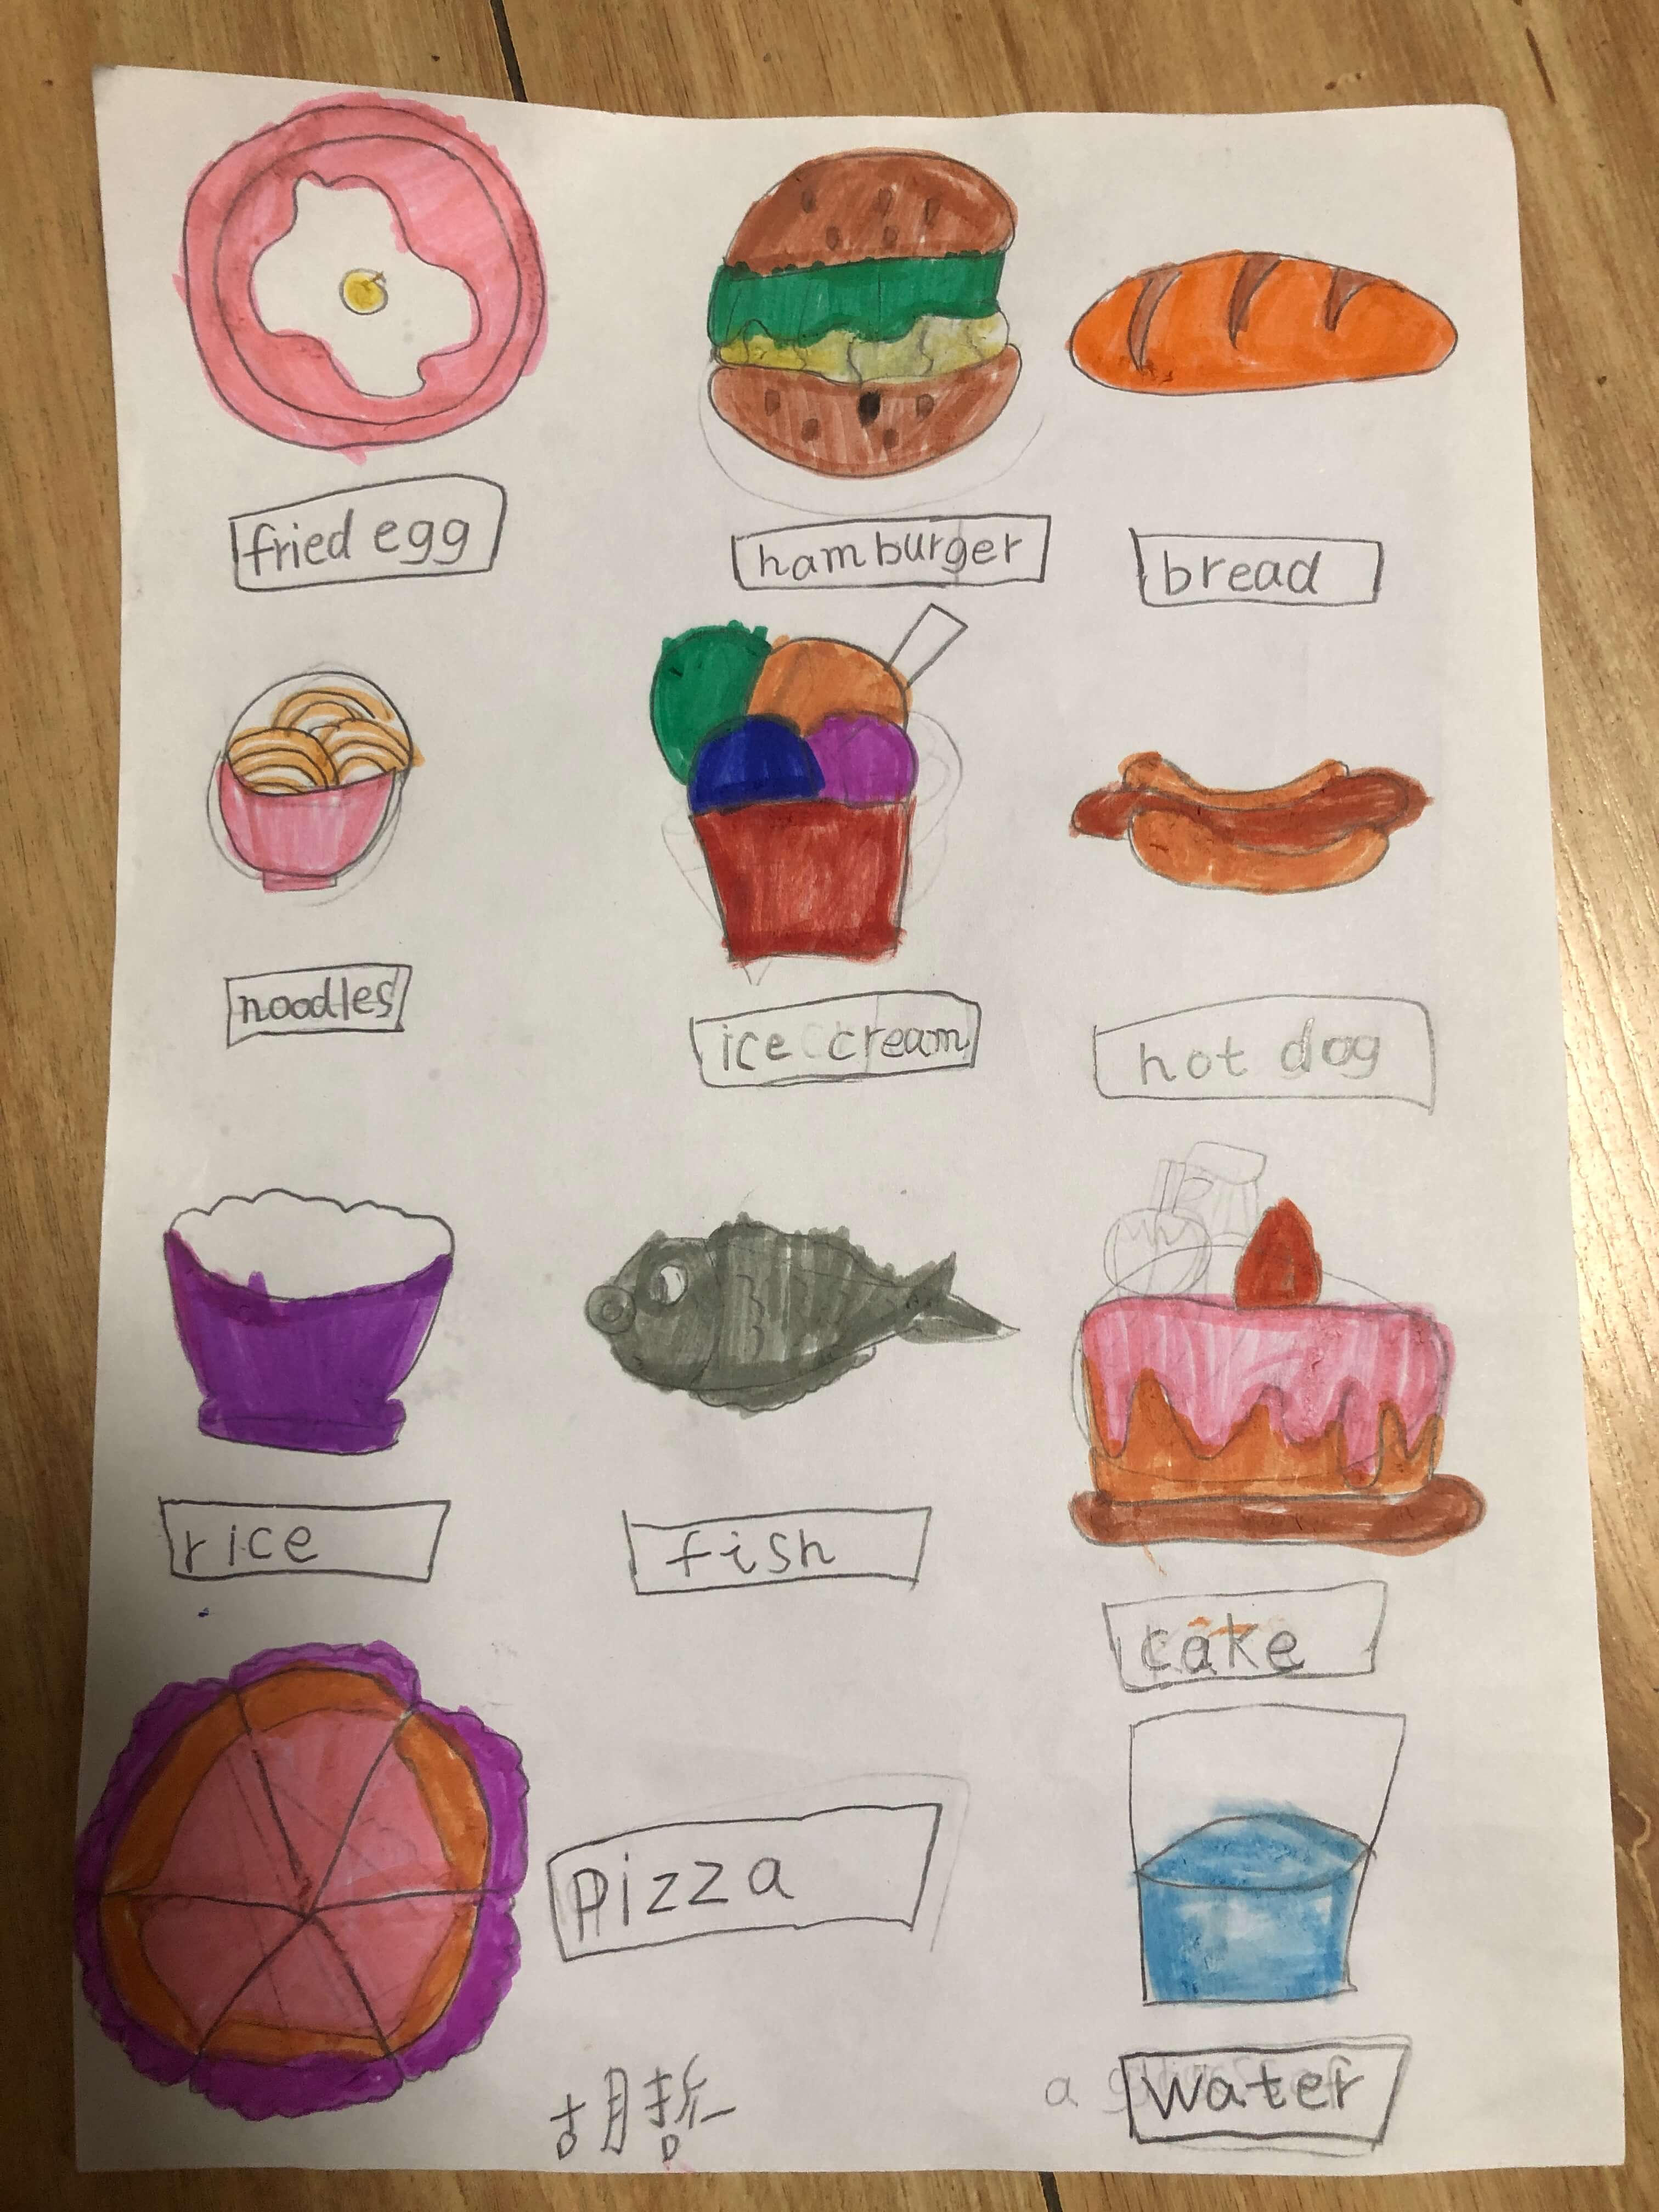 fried egg
hamburger
bread
noodles
ice cream
hot dog
rice
fish
cake
pizza
a
water
胡哲